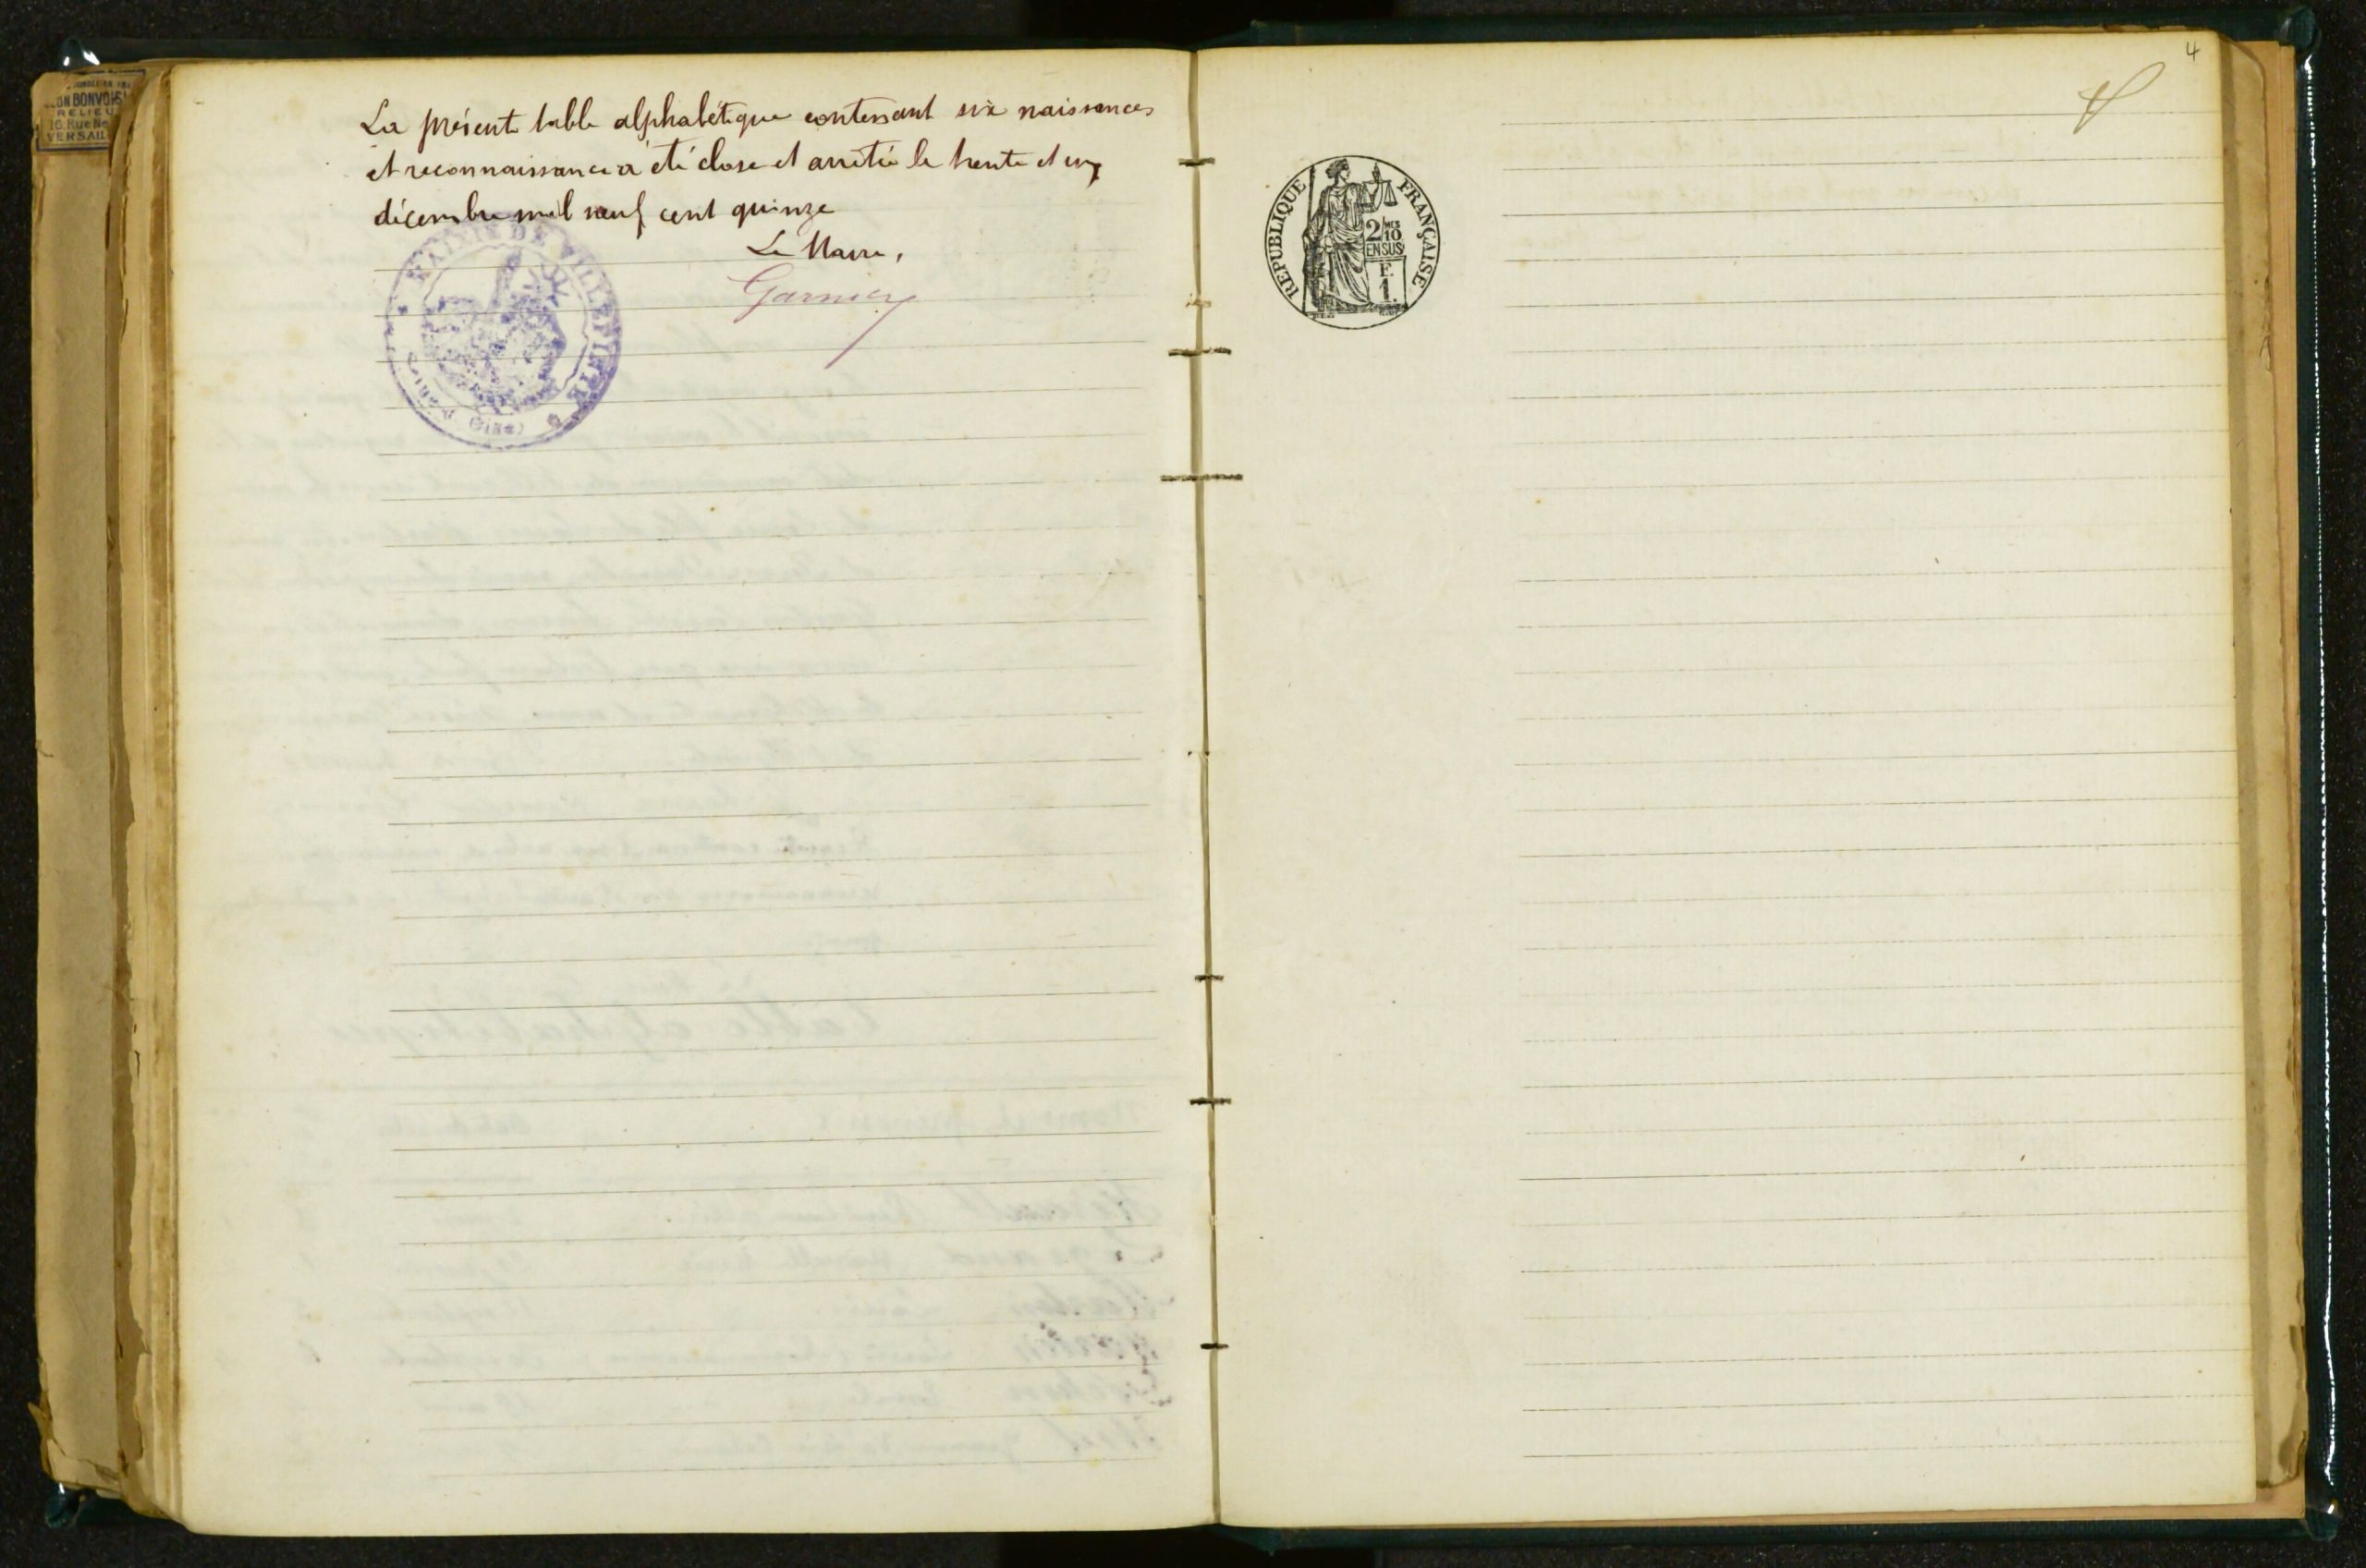 ON BONVOIS
RELIEU
16, Rue Ne
VERSAIL
La présente table alphabétique contenant six naissances
et reconnaissance a été close et arrêtée le trente et un
décembre mil neuf cent quinze
Le Maire,
Garnier
MAIRIE DE VILLEPINTE
(Seine & Oise)
4
REPUBLIQUE FRANÇAISE
2/10
MES
EN SUS
F.
1.